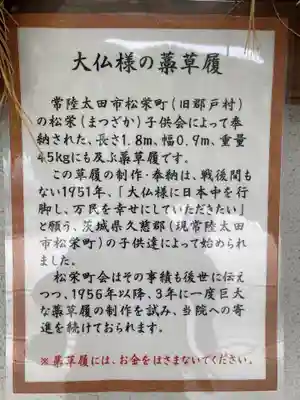 大仏様の藁草履
常陸太田市松栄町(旧郡戸村)
の松栄(まつざか)子供会によって奉
納された、長さ1.8m、幅0.9m、重量
45kgにも及ぶ藁草履です。
この草履の制作・奉納は、戦後間も
ない1951年、「大仏様に日本中を行
脚し、万民を幸せにしていただきたい」
と願う、茨城県久慈郡(現常陸太田
市松栄町)の子供達によって始められ
ました。
松栄町会はその事績も後世に伝え
つつ、1956年以降、3年に一度巨大
な藁草履の制作を試み、当院への寄
進を続けておられます。
※藁草履には、お金をはさまないでください。